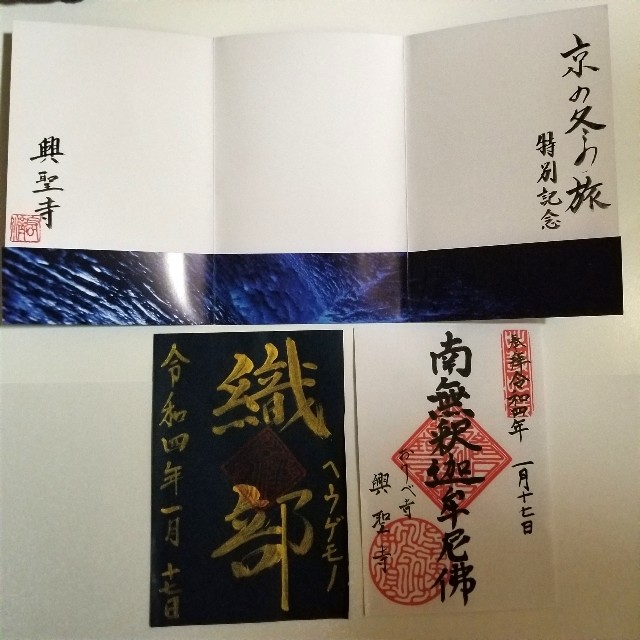 京の冬の旅
特別記念
興聖寺
織部
ヘウゲモノ
令和四年一月十七日
奉拝
令和四年
一月十七日
南無釈迦牟尼佛
おりべ寺
興聖寺